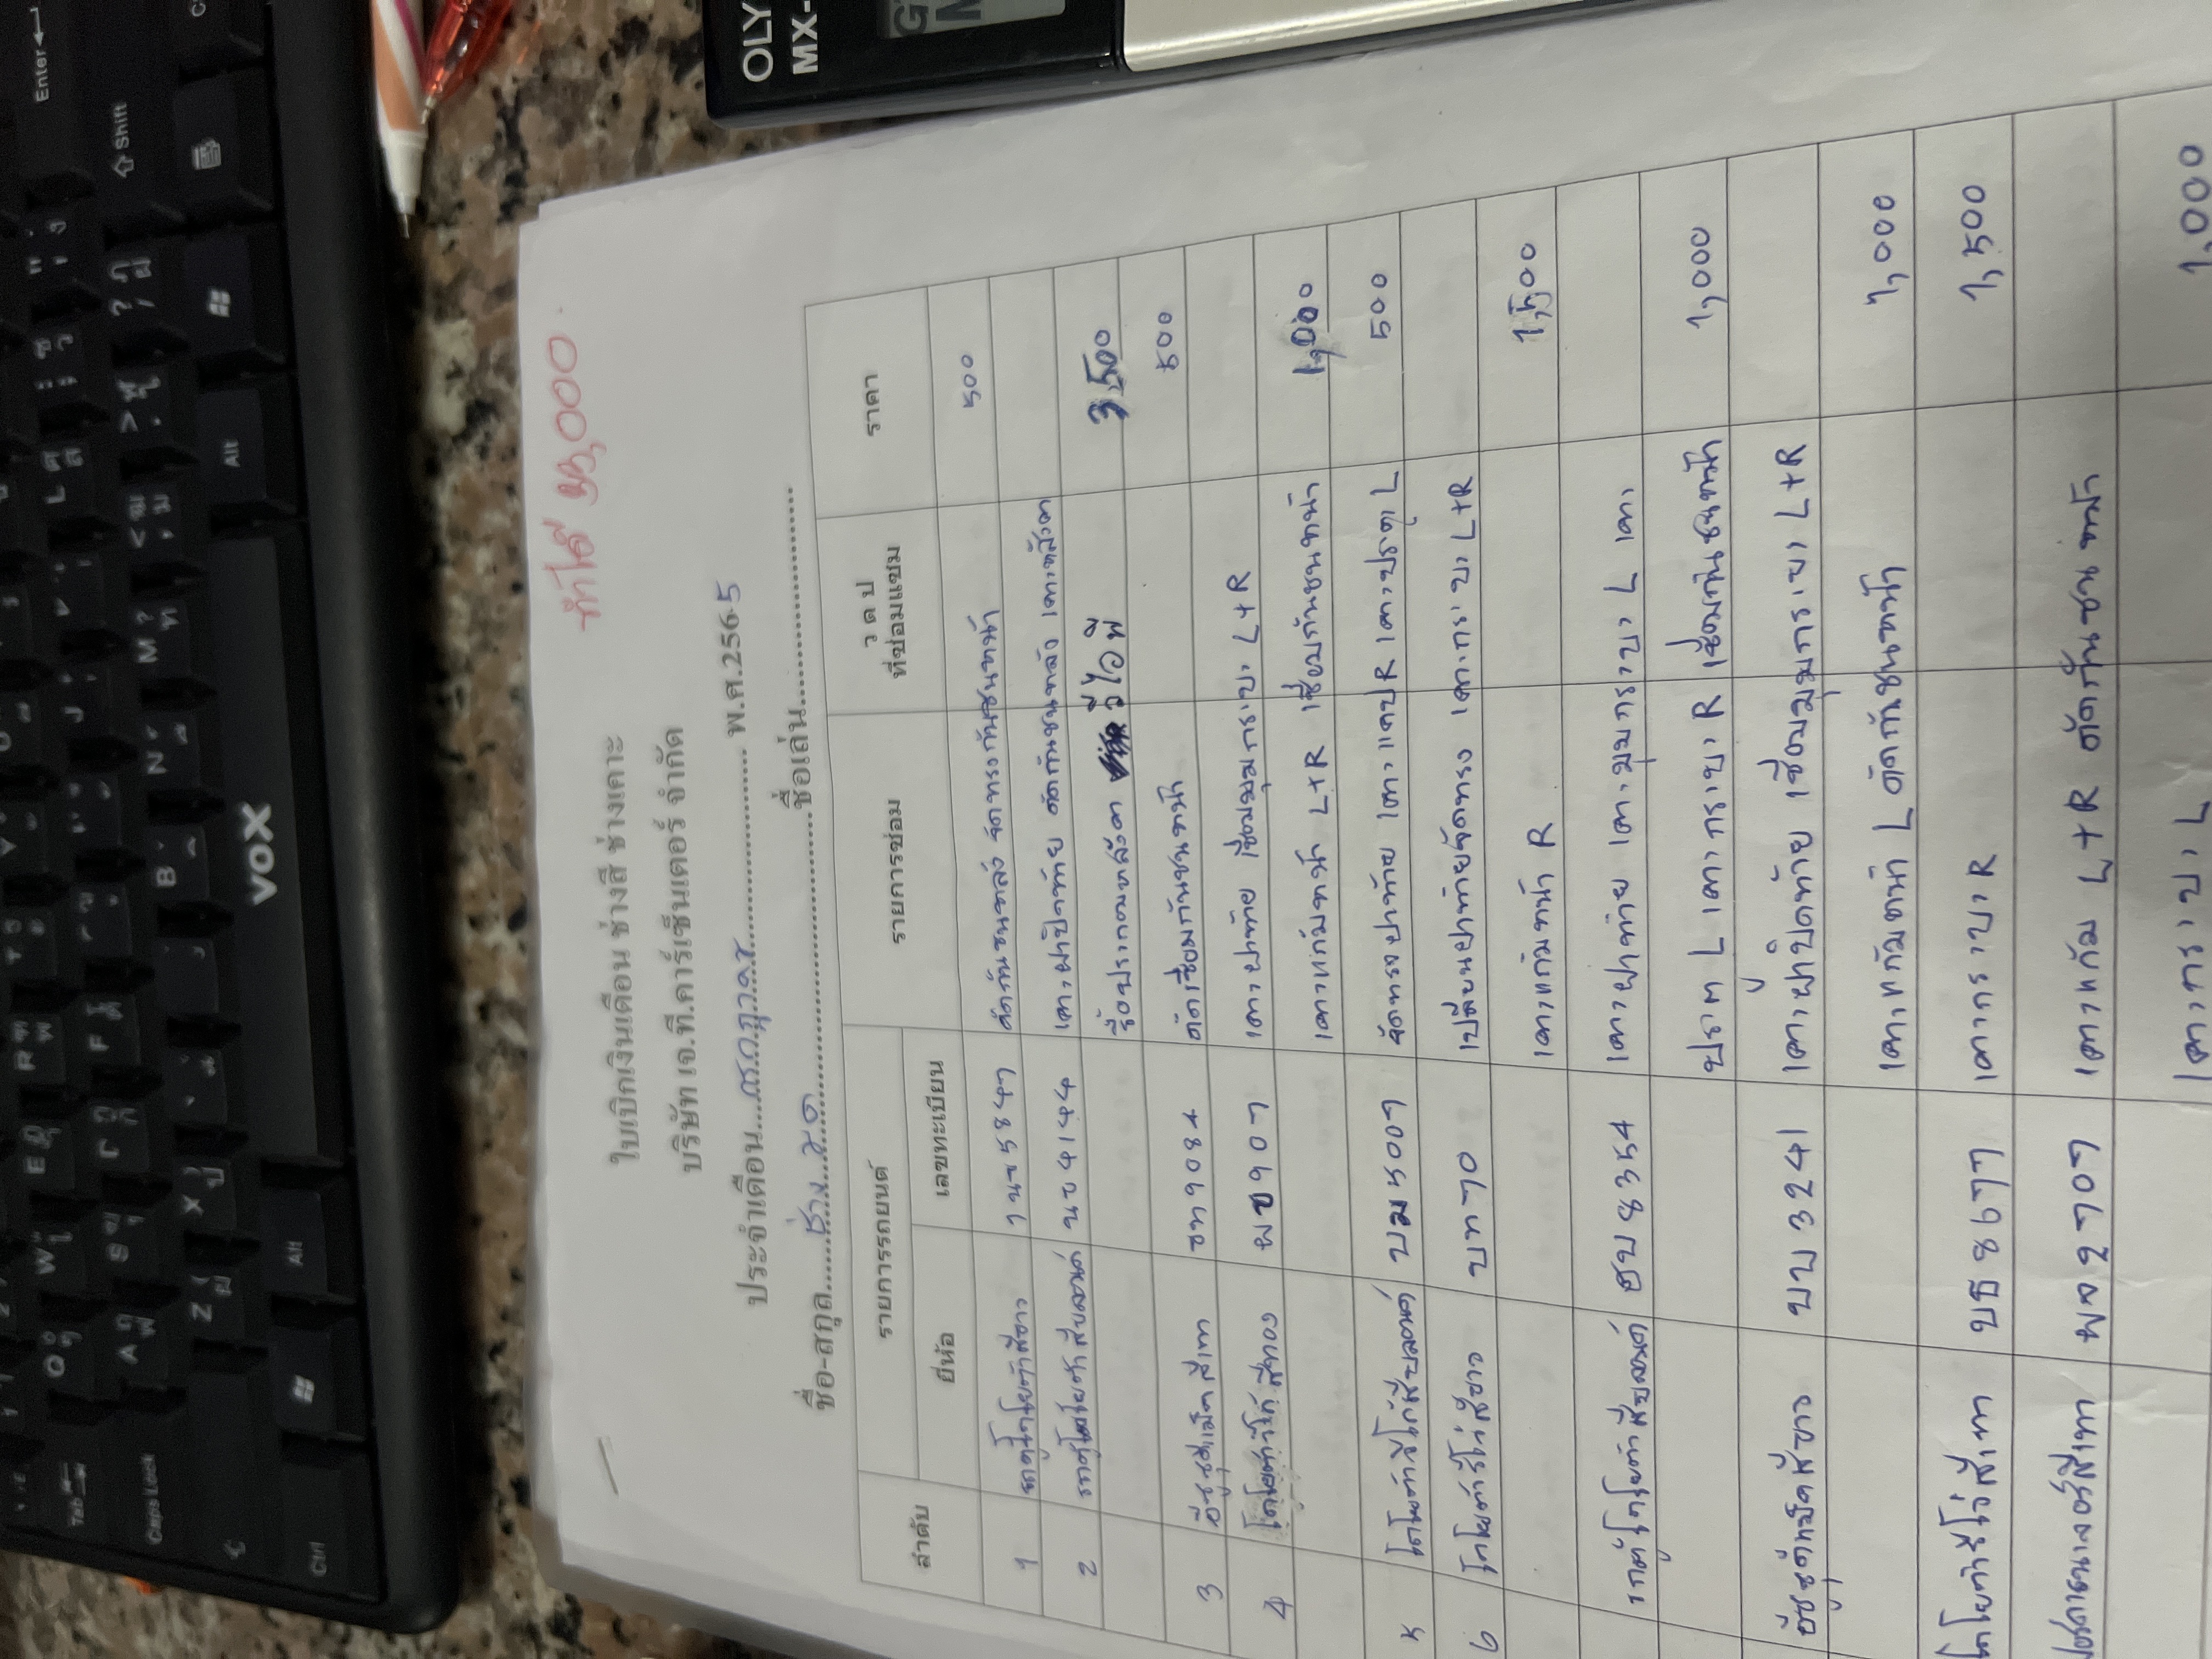 ทำได้ 43,000.
ใบเบิกเงินเดือน ช่างสี ช่างเคาะ
บริษัท เจ.ที.คาร์เซ็นเตอร์ จำกัด
ประจำเดือน กรกฎาคม พ.ศ.2565
ชื่อ-สกุล ช่าง ชื่อเล่น
ลำดับ รายการรถยนต์ รายการซ่อม ว ด ป ที่ซ่อมแซม ราคา
ยี่ห้อ เลขทะเบียน
1 รถตู้โตโยต้าสีขาว 1นข5847 ดัดกันชนหลัง จัดทรงกันชนหน้า 500
2 รถตู้โตโยต้าสีบลอนด์ นข 4144 เคาะฝาปิดท้าย ดัดกันชนหลัง เคาะหลังคา
รื้อประกอบหลังคา วีไอพี 3,500
3 อีซูซุสีเทา ฮท 9084 ดัดเชื่อมกันชนหน้า 500
4 โตโยต้าวีโก้ สีทอง ผข 907 เคาะฝาท้าย เชื่อมมุมกระบะ L+R
เคาะแก้มหน้า L+R เชื่อมกันชนหน้า 1,000
5 โตโยต้าวีโก้สีบลอนด์ บม 5007 จัดทรงฝาท้าย เคาะแคป R เคาะประตู L 500
6 โตโยต้ารีโว่สีขาว บท 70 เปลี่ยนฝาท้ายจัดทรง เคาะกระบะ L+R
เคาะแก้มหน้า R 1,500
รถตู้โตโยต้าสีบลอนด์ ฮบ 8354 เคาะฝาท้าย เคาะมุมกระบะ L เคาะ
ประตู L เคาะกระบะ R เชื่อมกันชนหน้า 1,000
อีซูซุดีแม็คสีขาว บบ 3241 เคาะฝาปิดท้าย เชื่อมมุมกระบะ L+R
เคาะแก้มหน้า L ดัดกันชนหน้า 1,000
โตโยต้ารีโว่สีเทา บธ 8677 เคาะกระบะ R 1,500
ฟอร์ดเรนเจอร์สีเทา ผจ 2707 เคาะแก้ม L+R ดัดกันชนหน้า
เคาะกระบะ L 1,000
OLY
MX-
VOX
Enter
Shift
Alt
Caps Lock
Tab
Ctrl